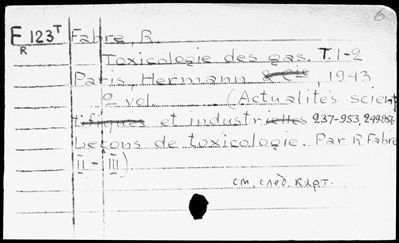 6
F 123 T Fabre, R.
R
Toxicologie des gas. T. 1-2
Paris, Hermann & Cie, 1943
2 vol. (Actualités scient
ifiques et industrielles 937-953,
Leçons de toxicologie. Par R. Fabre
II - III)